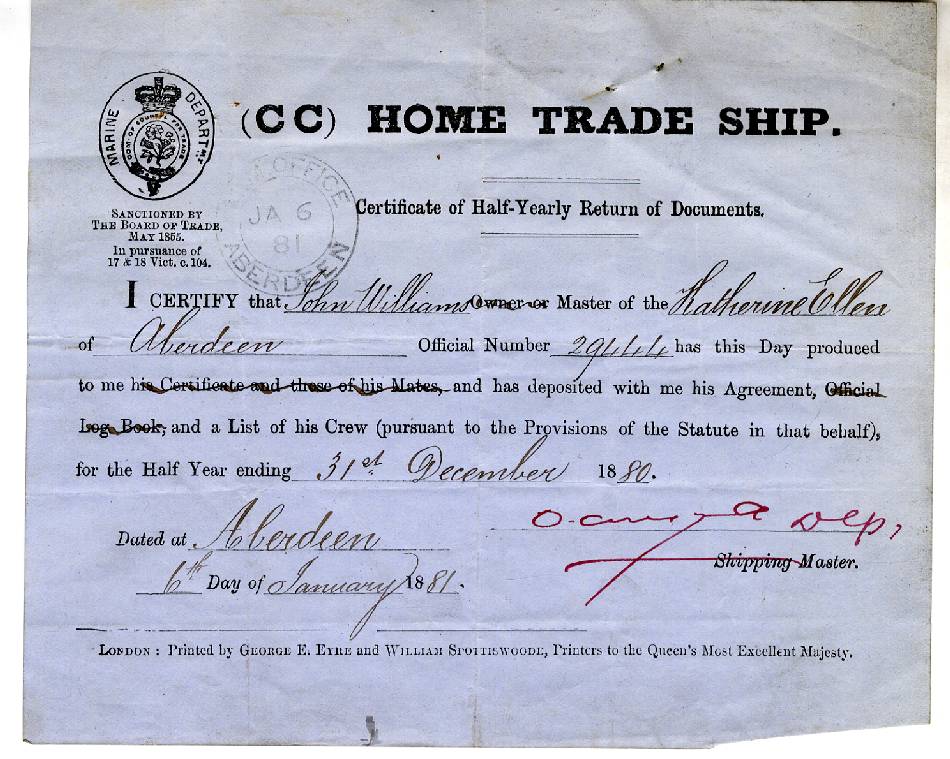 MARINE DEPARTMT
(CC) HOME TRADE SHIP.
SANCTIONED BY
THE BOARD OF TRADE,
MAY 1855.
In pursuance of
17 & 18 Vict. c. 104.
OFFICE
JA 6
81
ABERDEEN
Certificate of Half-Yearly Return of Documents.
I CERTIFY that John Williams Owner or Master of the Katherine Ellen
of Aberdeen Official Number 29444 has this Day produced
to me his Certificate and those of his Mates, and has deposited with me his Agreement, Official
Log Book, and a List of his Crew (pursuant to the Provisions of the Statute in that behalf),
for the Half Year ending 31st December 1880.
Dated at Aberdeen
Dep,
Shipping Master.
6th Day of January 1881.
LONDON: Printed by GEORGE E. EYRE and WILLIAM SPOTTISWOODE, Printers to the Queen's Most Excellent Majesty.